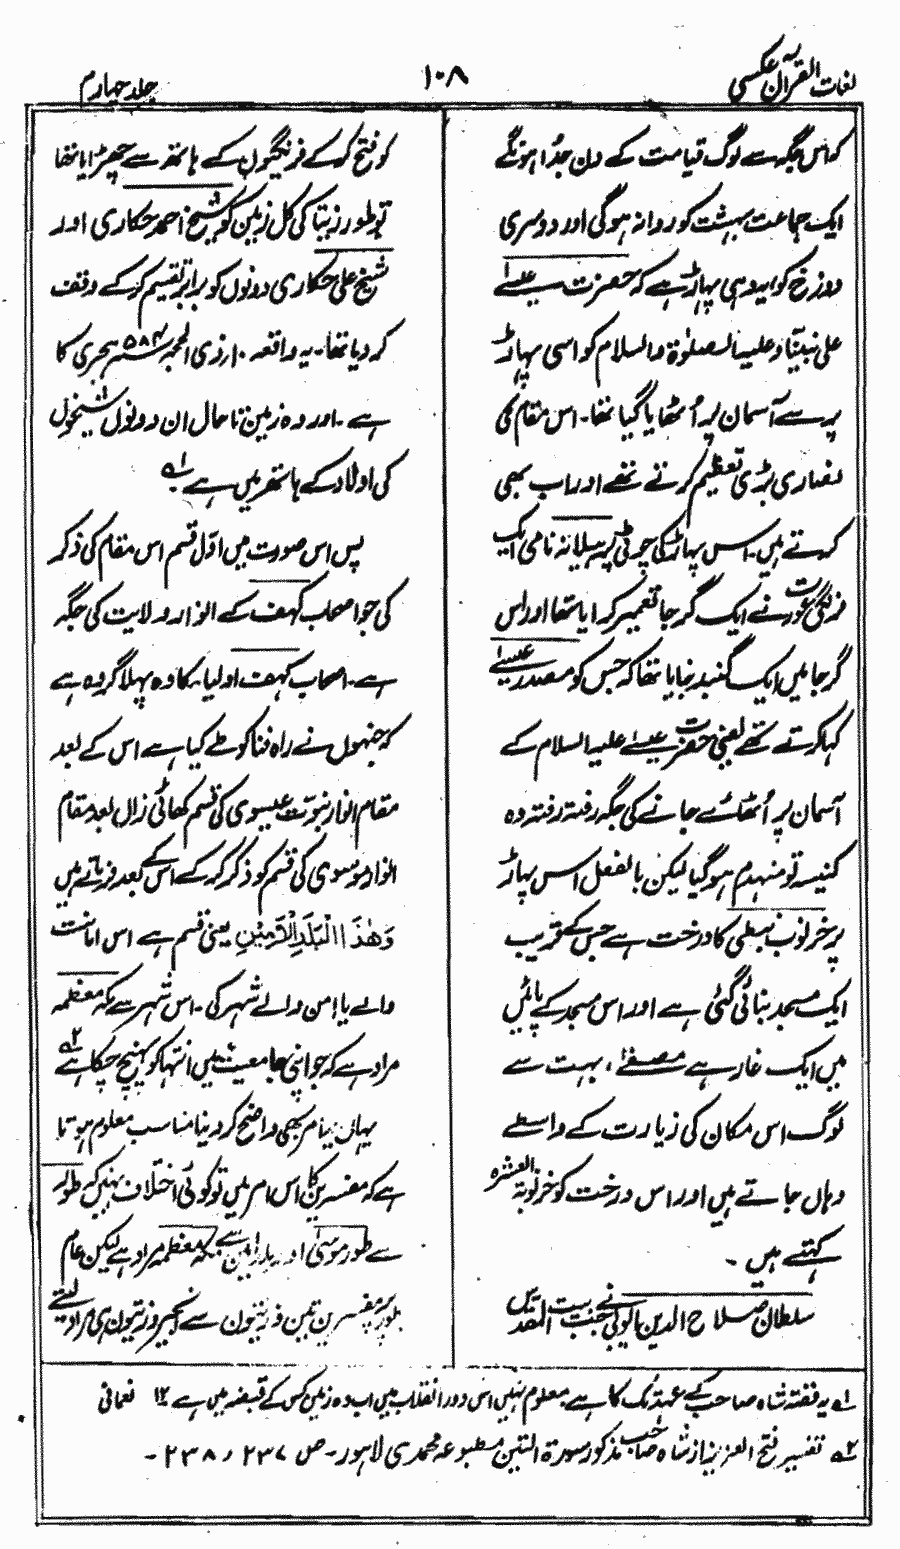 لغات القرآن عکسی
۱۰۸
جلد چہارم
کو اس جگہ سے لوگ قیامت کے دن جدُا ہونگے
ایک جماعت بہشت کو روانہ ہوگی اور دوسری
دوزخ کو اور وہی پہاڑ ہے کہ حضرت عیسےٰ
علی نبینا وعلیہ الصلوٰۃ والسلام کو اسی پہاڑ
پر سے آسمان پر اُٹھایا گیا تھا۔ اس مقام کی
نصاری بڑی تعظیم کرتے تھے اور اب بھی
کرتے ہیں۔ اس پہاڑ کی چوٹی پر ہیلانہ نامی ایک
فرنگی عورت نے ایک گرجا تعمیر کرایا تھا اور اس
گرجا میں ایک گنبد بنایا تھا کہ جس کو مصعد عیسےٰ
کہا کرتے تھے یعنی حضرت عیسےٰ علیہ السلام کے
آسمان پر اُٹھائے جانے کی جگہ رفتہ رفتہ وہ
کنیسہ تو منہدم ہو گیا لیکن بالفعل اس پہاڑ
پر خرنوب نبطی کا درخت ہے جس کے قریب
ایک مسجد بنائی گئی ہے اور اس مسجد کے پائیں
میں ایک غار ہے مصفیٰ، بہت سے
لوگ اس مکان کی زیارت کے واسطے
وہاں جاتے ہیں اور اس درخت کو خرنوبۃ العشرہ
کہتے ہیں ۔
سلطان صلاح الدین ایوبی نے جب بیت المقدس
کو فتح کر کے فرنگیوں کے ہاتھ سے چھڑایا تھا
تو طور زیتا کی کل زمین کو شیخ احمد حکاری اور
شیخ علی حکاری دونوں کو برابر تقسیم کر کے وقف
کر دیا تھا۔ یہ واقعہ ۱۰ ذی الحجہ ۵۸۴ ہجری کا
ہے ۔ اور وہ زمین تا حال ان دونوں شیخوں
کی اولاد کے ہاتھ میں ہے ۱ے
پس اس صورت میں اوّل قسم اس مقام کی ذکر
کی جو اصحاب کہف کے انوار ولایت کی جگہ
ہے۔ اصحاب کہف اولیاء کا وہ پہلا گروہ ہے
کہ جنہوں نے راہ فنا کو طے کیا ہے اس کے بعد
مقام انوار نبوّت عیسوی کی قسم کھائی زاں بعد مقام
انوار موسوی کی قسم کو ذکر کر کے اس کے بعد فرماتے ہیں
وَهٰذَا الْبَلَدِ الْاَمِيْنِ یعنی قسم ہے اس امانت
والے یا امن والے شہر کی ۔ اس شہر سے مکہ معظمہ
مراد ہے کہ جو اپنی جامعیت میں انتہا کو پہنچ چکا ہے ۲ے
یہاں بنام بھی واضح کر دینا مناسب معلوم ہوتا
ہے کہ مفسرین کا اس امر میں تو کوئی اختلاف نہیں کہ طور
سے طور موسیٰ اور بلد امین سے مکہ معظمہ مراد ہے لیکن عام
طور پر مفسرین تین و زیتون سے انجیر و زیتون ہی مراد لیتے
۱ے یہ نقشہ شاہ صاحب کے عہد تک کا ہے معلوم نہیں اس دور انقلاب میں اب وہ زمین کس کے قبضہ میں ہے ۱۲ نعمانی
۲ے تفسیر فتح العزیز از شاہ صاحب مذکور سورۃ التین مطبوعہ محمدی لاہور۔ ص ۲۳۷ ، ۲۳۸ ۔